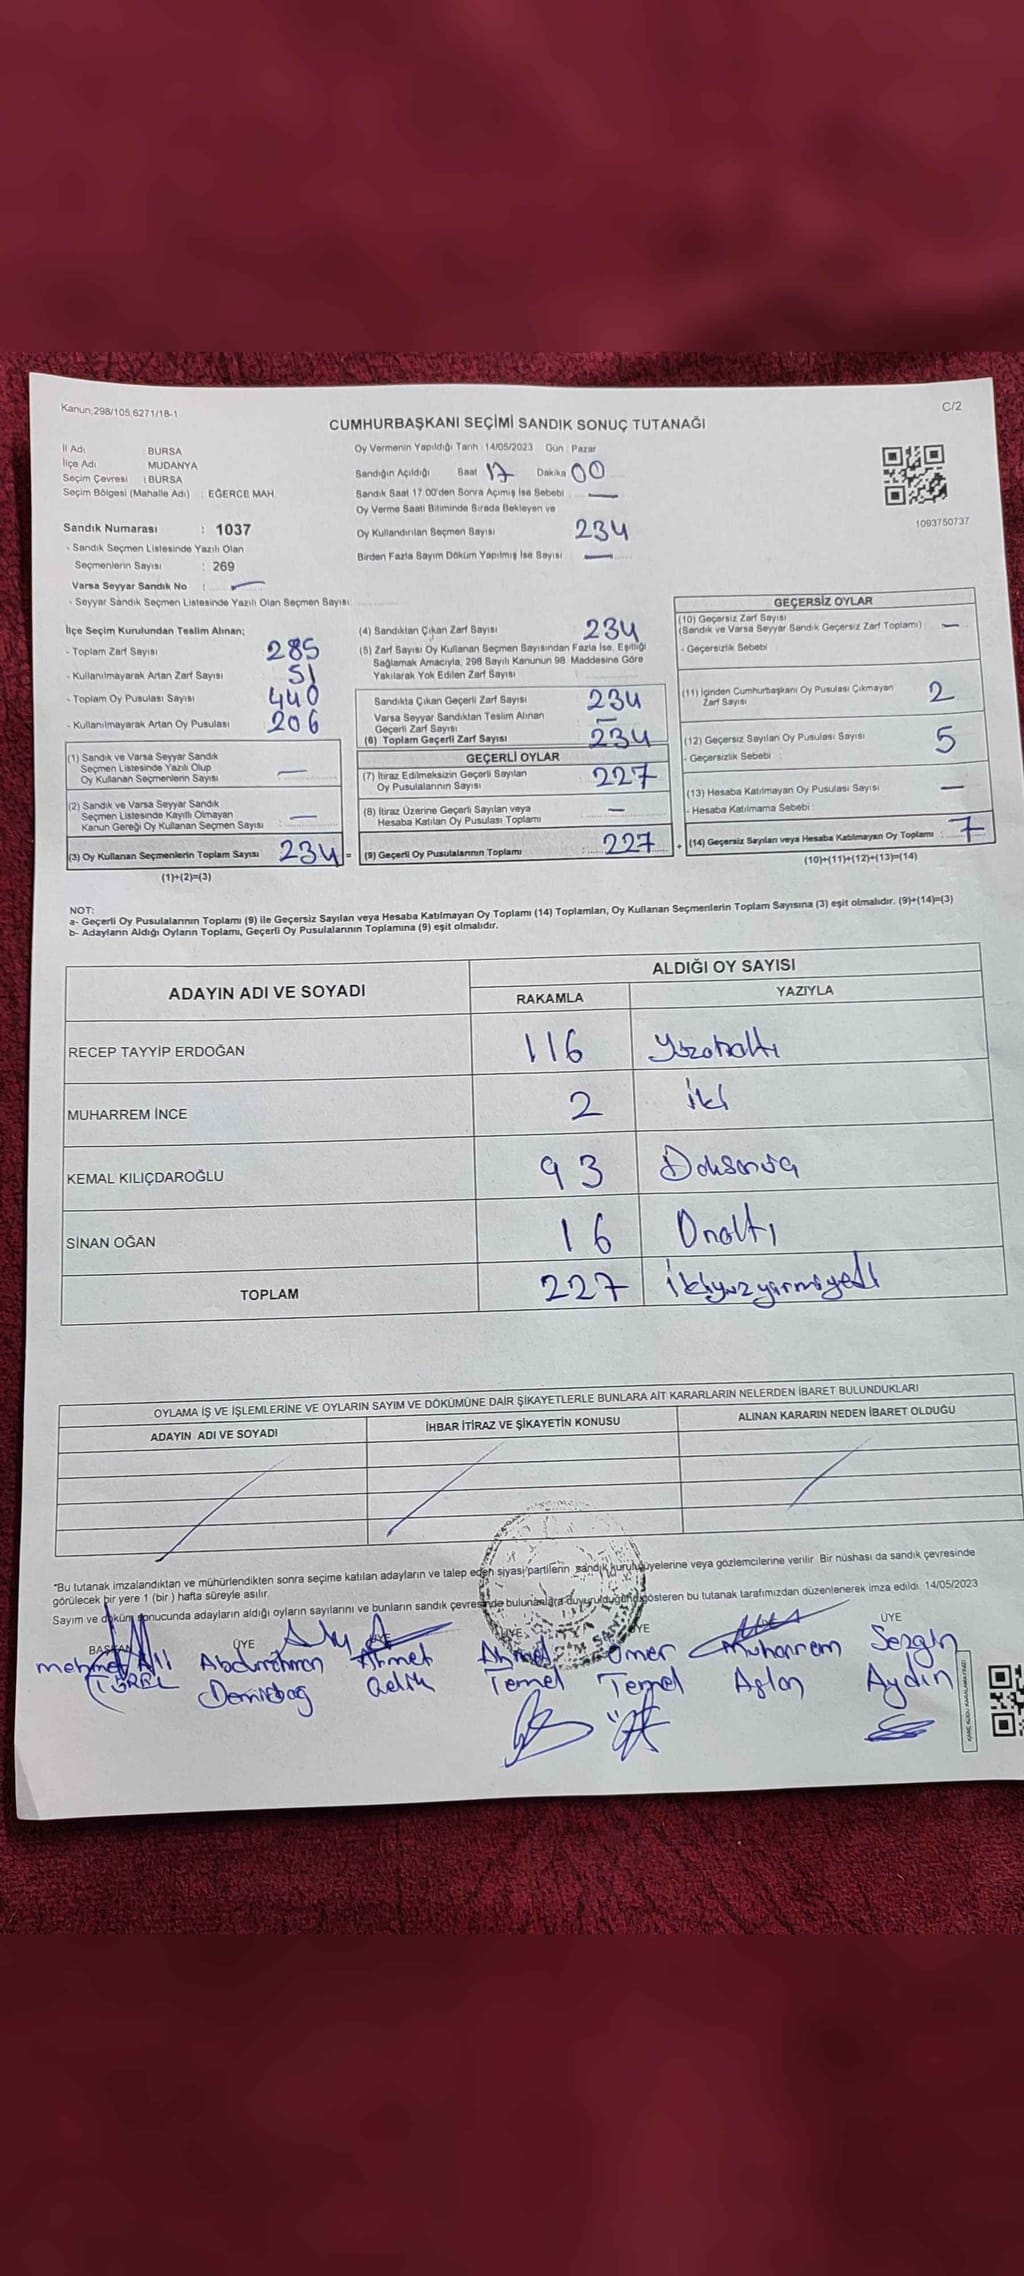 Kanun,298/105,6271/18-1
C/2
CUMHURBAŞKANI SEÇİMİ SANDIK SONUÇ TUTANAĞI
İl Adı : BURSA
İlçe Adı : MUDANYA
Seçim Çevresi : BURSA
Seçim Bölgesi (Mahalle Adı) : EĞERCE MAH.
Sandık Numarası : 1037
- Sandık Seçmen Listesinde Yazılı Olan
Seçmenlerin Sayısı : 269
Varsa Seyyar Sandık No : —
- Seyyar Sandık Seçmen Listesinde Yazılı Olan Seçmen Sayısı:
Oy Vermenin Yapıldığı Tarih : 14/05/2023 Gün : Pazar
Sandığın Açıldığı Saat 17 Dakika 00
Sandık Saat 17.00'den Sonra Açımış İse Sebebi —
Oy Verme Saati Bitiminde Sırada Bekleyen ve
Oy Kullandırılan Seçmen Sayısı 234
Birden Fazla Sayım Döküm Yapılmış İse Sayısı —
1093750737
İlçe Seçim Kurulundan Teslim Alınan;
- Toplam Zarf Sayısı 285
- Kullanılmayarak Artan Zarf Sayısı 51
- Toplam Oy Pusulası Sayısı 440
- Kullanılmayarak Artan Oy Pusulası 206
(1) Sandık ve Varsa Seyyar Sandık
Seçmen Listesinde Yazılı Olup
Oy Kullanan Seçmenlerin Sayısı —
(2) Sandık ve Varsa Seyyar Sandık
Seçmen Listesinde Kayıtlı Olmayan
Kanun Gereği Oy Kullanan Seçmen Sayısı —
(3) Oy Kullanan Seçmenlerin Toplam Sayısı 234 =
(1)+(2)=(3)
(4) Sandıktan Çıkan Zarf Sayısı 234
(5) Zarf Sayısı Oy Kullanan Seçmen Sayısından Fazla İse, Eşitliği
Sağlamak Amacıyla, 298 Sayılı Kanunun 98. Maddesine Göre
Yakılarak Yok Edilen Zarf Sayısı
Sandıkta Çıkan Geçerli Zarf Sayısı 234
Varsa Seyyar Sandıktan Teslim Alınan
Geçerli Zarf Sayısı —
(6) Toplam Geçerli Zarf Sayısı 234
GEÇERLİ OYLAR
(7) İtiraz Edilmeksizin Geçerli Sayılan
Oy Pusulalarının Sayısı 227
(8) İtiraz Üzerine Geçerli Sayılan veya
Hesaba Katılan Oy Pusulası Toplamı —
(9) Geçerli Oy Pusulalarının Toplamı : 227 +
GEÇERSİZ OYLAR
(10) Geçersiz Zarf Sayısı
(Sandık ve Varsa Seyyar Sandık Geçersiz Zarf Toplamı) —
- Geçersizlik Sebebi
(11) İçinden Cumhurbaşkanı Oy Pusulası Çıkmayan
Zarf Sayısı 2
(12) Geçersiz Sayılan Oy Pusulası Sayısı 5
- Geçersizlik Sebebi :
(13) Hesaba Katılmayan Oy Pusulası Sayısı —
- Hesaba Katılmama Sebebi
(14) Geçersiz Sayılan veya Hesaba Katılmayan Oy Toplamı : 7
(10)+(11)+(12)+(13)=(14)
NOT:
a- Geçerli Oy Pusulalarının Toplamı (9) ile Geçersiz Sayılan veya Hesaba Katılmayan Oy Toplamı (14) Toplamları, Oy Kullanan Seçmenlerin Toplam Sayısına (3) eşit olmalıdır. (9)+(14)=(3)
b- Adayların Aldığı Oyların Toplamı, Geçerli Oy Pusulalarının Toplamına (9) eşit olmalıdır.
ADAYIN ADI VE SOYADI
ALDIĞI OY SAYISI
RAKAMLA YAZIYLA
RECEP TAYYİP ERDOĞAN 116 Yüzonaltı
MUHARREM İNCE 2 iki
KEMAL KILIÇDAROĞLU 93 Doksanüç
SİNAN OĞAN 16 Onaltı
TOPLAM 227 ikiyuzyirmiyedi
OYLAMA İŞ VE İŞLEMLERİNE VE OYLARIN SAYIM VE DÖKÜMÜNE DAİR ŞİKAYETLERLE BUNLARA AİT KARARLARIN NELERDEN İBARET BULUNDUKLARI
ADAYIN ADI VE SOYADI İHBAR İTİRAZ VE ŞİKAYETİN KONUSU ALINAN KARARIN NEDEN İBARET OLDUĞU
"Bu tutanak imzalandıktan ve mühürlendikten sonra seçime katılan adayların ve talep eden siyasi partilerin sandık kurulu üyelerine veya gözlemcilerine verilir. Bir nüshası da sandık çevresinde
görülecek bir yere 1 (bir ) hafta süreyle asılır.
Sayım ve döküm sonucunda adayların aldığı oyların sayılarını ve bunların sandık çevresinde bulunanlara duyurulduğunu gösteren bu tutanak tarafımızdan düzenlenerek imza edildi. 14/05/2023
BAŞKAN ÜYE ÜYE ÜYE ÜYE ÜYE
mehmet Ali Abdurrahman Ahmet Ahmet Ömer Muharrem Sezgin
TÜREL Demirbağ Çelik Temel Temel Aslan Aydın